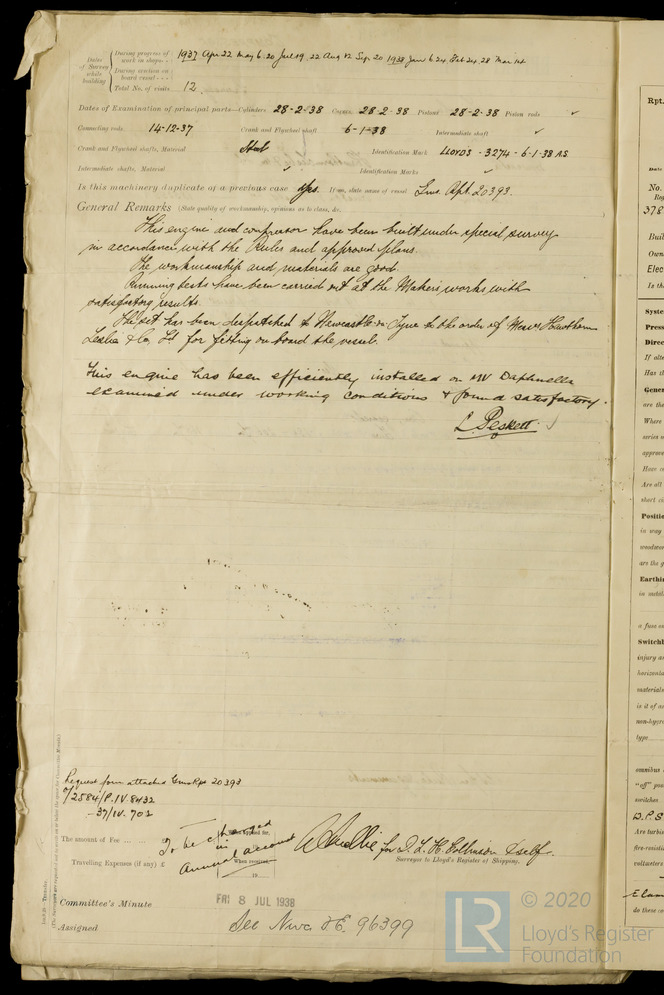 Dates of Survey while building
During progress of work in shops - - 1937 Apr 22 May 6. 20 Jul 19. 22 Aug 12 Sep. 20 1938 Jan 6. 24 Feb 24. 28 Mar 14
During erection on board vessel - - -
Total No. of visits 12.
Dates of Examination of principal parts—Cylinders 28-2-38 Covers 28-2-38 Pistons 28-2-38 Piston rods ✓
Connecting rods 14-12-37 Crank and Flywheel shaft 6-1-38 Intermediate shaft ✓
Crank and Flywheel shafts, Material Steel Identification Mark LLOYDS - 3274 - 6-1-38 A.S.
Intermediate shafts, Material ✓ Identification Marks ✓
Is this machinery duplicate of a previous case Yes. If so, state name of vessel Gms. Rpt. 20393.
General Remarks (State quality of workmanship, opinions as to class, &c.
This engine and compressor have been built under special survey
in accordance with the Rules and approved plans.
The workmanship and materials are good.
Running tests have been carried out at the Makers works with
satisfactory results.
The set has been despatched to Newcastle-on-Tyne to the order of Messrs Hawthorn
Leslie & Co. Ld for fitting on board the vessel.
This engine has been efficiently installed on MV Daphnella
examined under working conditions & found satisfactory.
L. Peskett.
Request form attached Gms Rpt 20393
2584/P.IV.8432
-37/IV.702
The amount of Fee ... ... £ To be charged in annual account
When applied for,
Travelling Expenses (if any) £
When received,
19
for J. L. H. Collinson & self.
Surveyor to Lloyd's Register of Shipping.
Committee's Minute FRI 8 JUL 1938
Assigned See Nwc. J.E. 96399
Rpt.
No.
378
Buil
Own
Elec
Is th
Syste
Press
Direc
If alte
Has th
Gener
are the
Where
series w
approve
Have ce
Are all
short ci
Positio
in way
woodwo
are the g
Earthin
in metal
a fuse on
Switchb
injury an
horizonta
materials
is it of no
non-hygro
type
omnibus
"off" pos
switches
D.P.S
Are turbi
fire-resisti
voltmeters
do these in
© 2020
LR
Lloyd's Register
Foundation